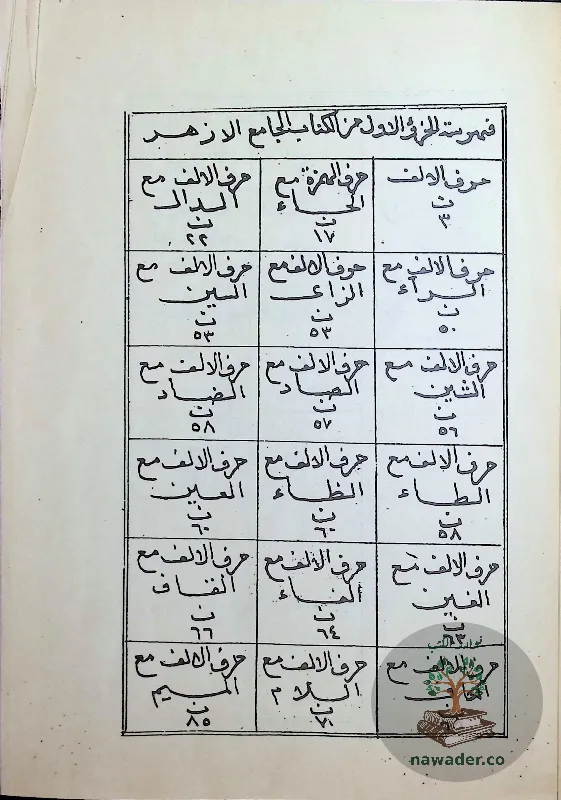 فهرسة الجزؤ الاول من الكتاب الجامع الازهر
حرف الالف
ن
٣
حرف الهمزة مع
الحاء
ن
١٧
حرف الالف مع
الدال
ن
٢٢
حرف الالف مع
الرآء
ن
٥٠
حرف الالف مع
الزاى
ن
٥٣
حرف الالف مع
السين
ن
٥٣
حرف الالف مع
الشين
ن
٥٦
حرف الالف مع
الصاد
ن
٥٧
حرف الالف مع
الضاد
ن
٥٨
حرف الالف مع
الطاء
ن
٥٨
حرف الالف مع
الظاء
ن
٦٠
حرف الالف مع
العين
ن
٦٠
حرف الالف مع
الغين
ن
٦٣
حرف الالف مع
الفاء
ن
٦٤
حرف الالف مع
القاف
ن
٦٦
حرف الالف مع
حرف الالف مع
اللام
ن
٧٠
حرف الالف مع
الميم
ن
٨٥
نوادر الكتب
nawader.co